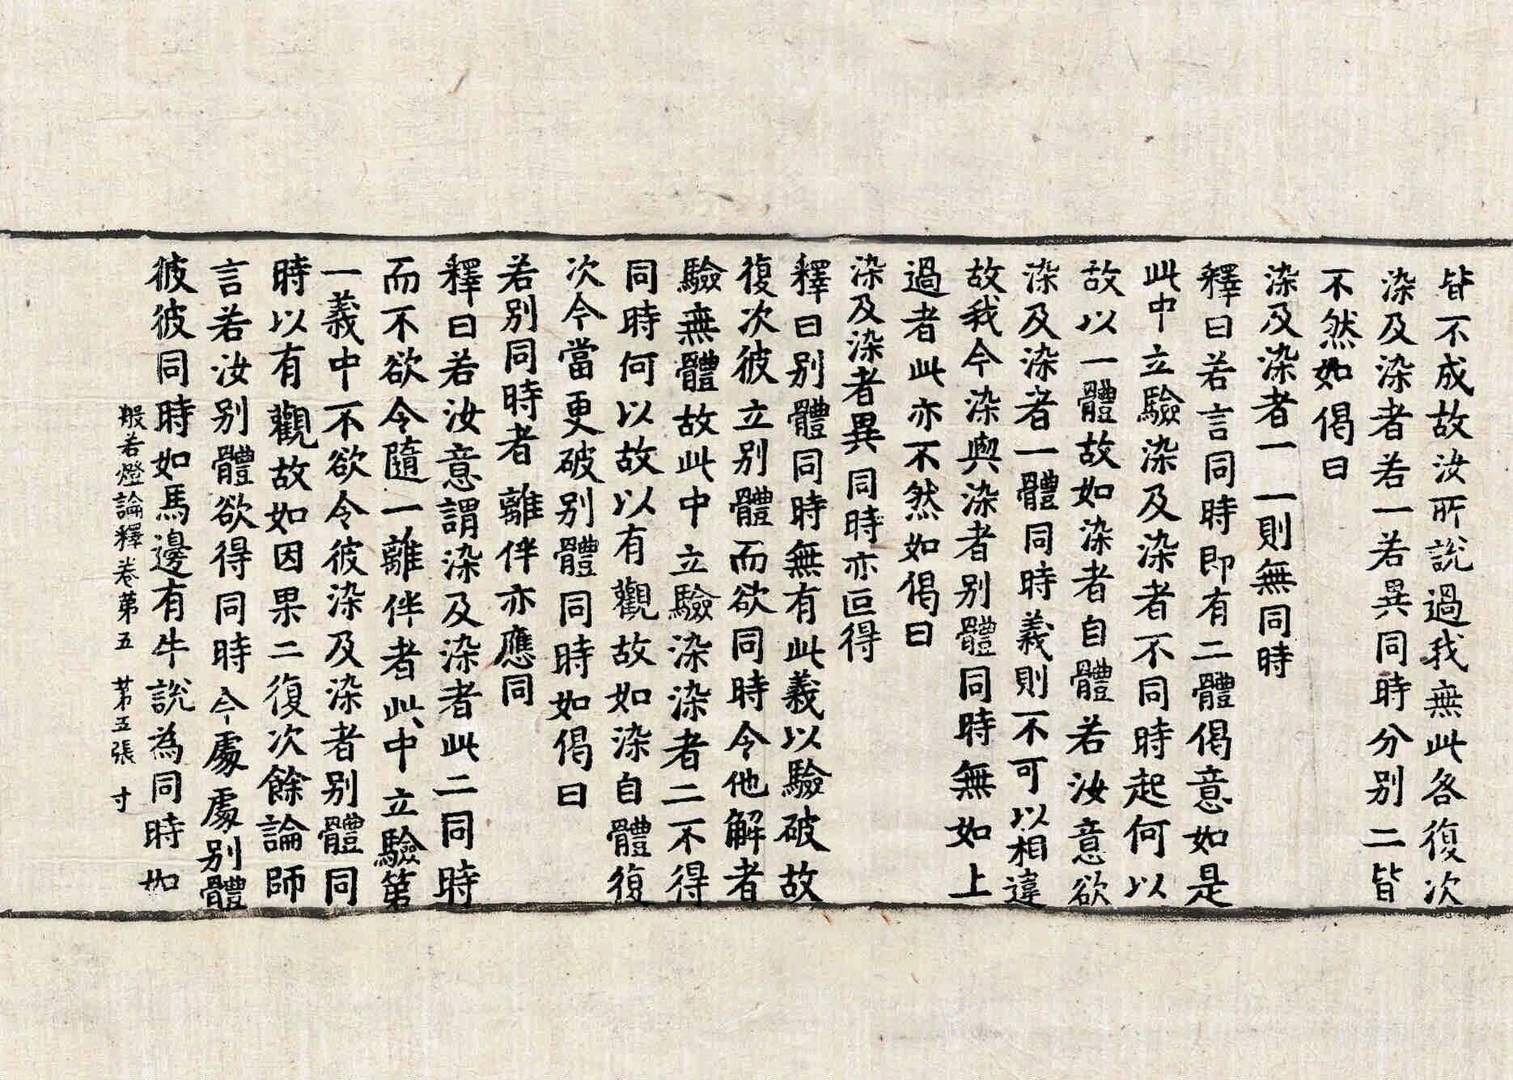 皆不成故汝所說過我無此咎復次
染及染者若一若異同時分別二皆
不然如偈曰
染及染者一 一則無同時
釋曰若言同時即有二體偈意如是
此中立驗染及染者不同時起何以
故以一體故如染者自體若汝意欲
染及染者一體同時義則不可以相違
故我今染與染者別體同時無如上
過者此亦不然如偈曰
染及染者異 同時亦叵得
釋曰別體同時無有此義以驗破故
復次彼立別體而欲同時令他解者
驗無體故此中立驗染染者二不得
同時何以故以有觀故如染自體復
次今當更破別體同時如偈曰
若別同時者 離伴亦應同
釋曰若汝意謂染及染者此二同時
而不欲令隨一離伴者此中立驗第
一義中不欲令彼染及染者別體同
時以有觀故如因果二復次餘論師
言若汝別體欲得同時今處處別體
彼彼同時如馬邊有牛說為同時如
般若燈論釋卷第五 第五張 寸